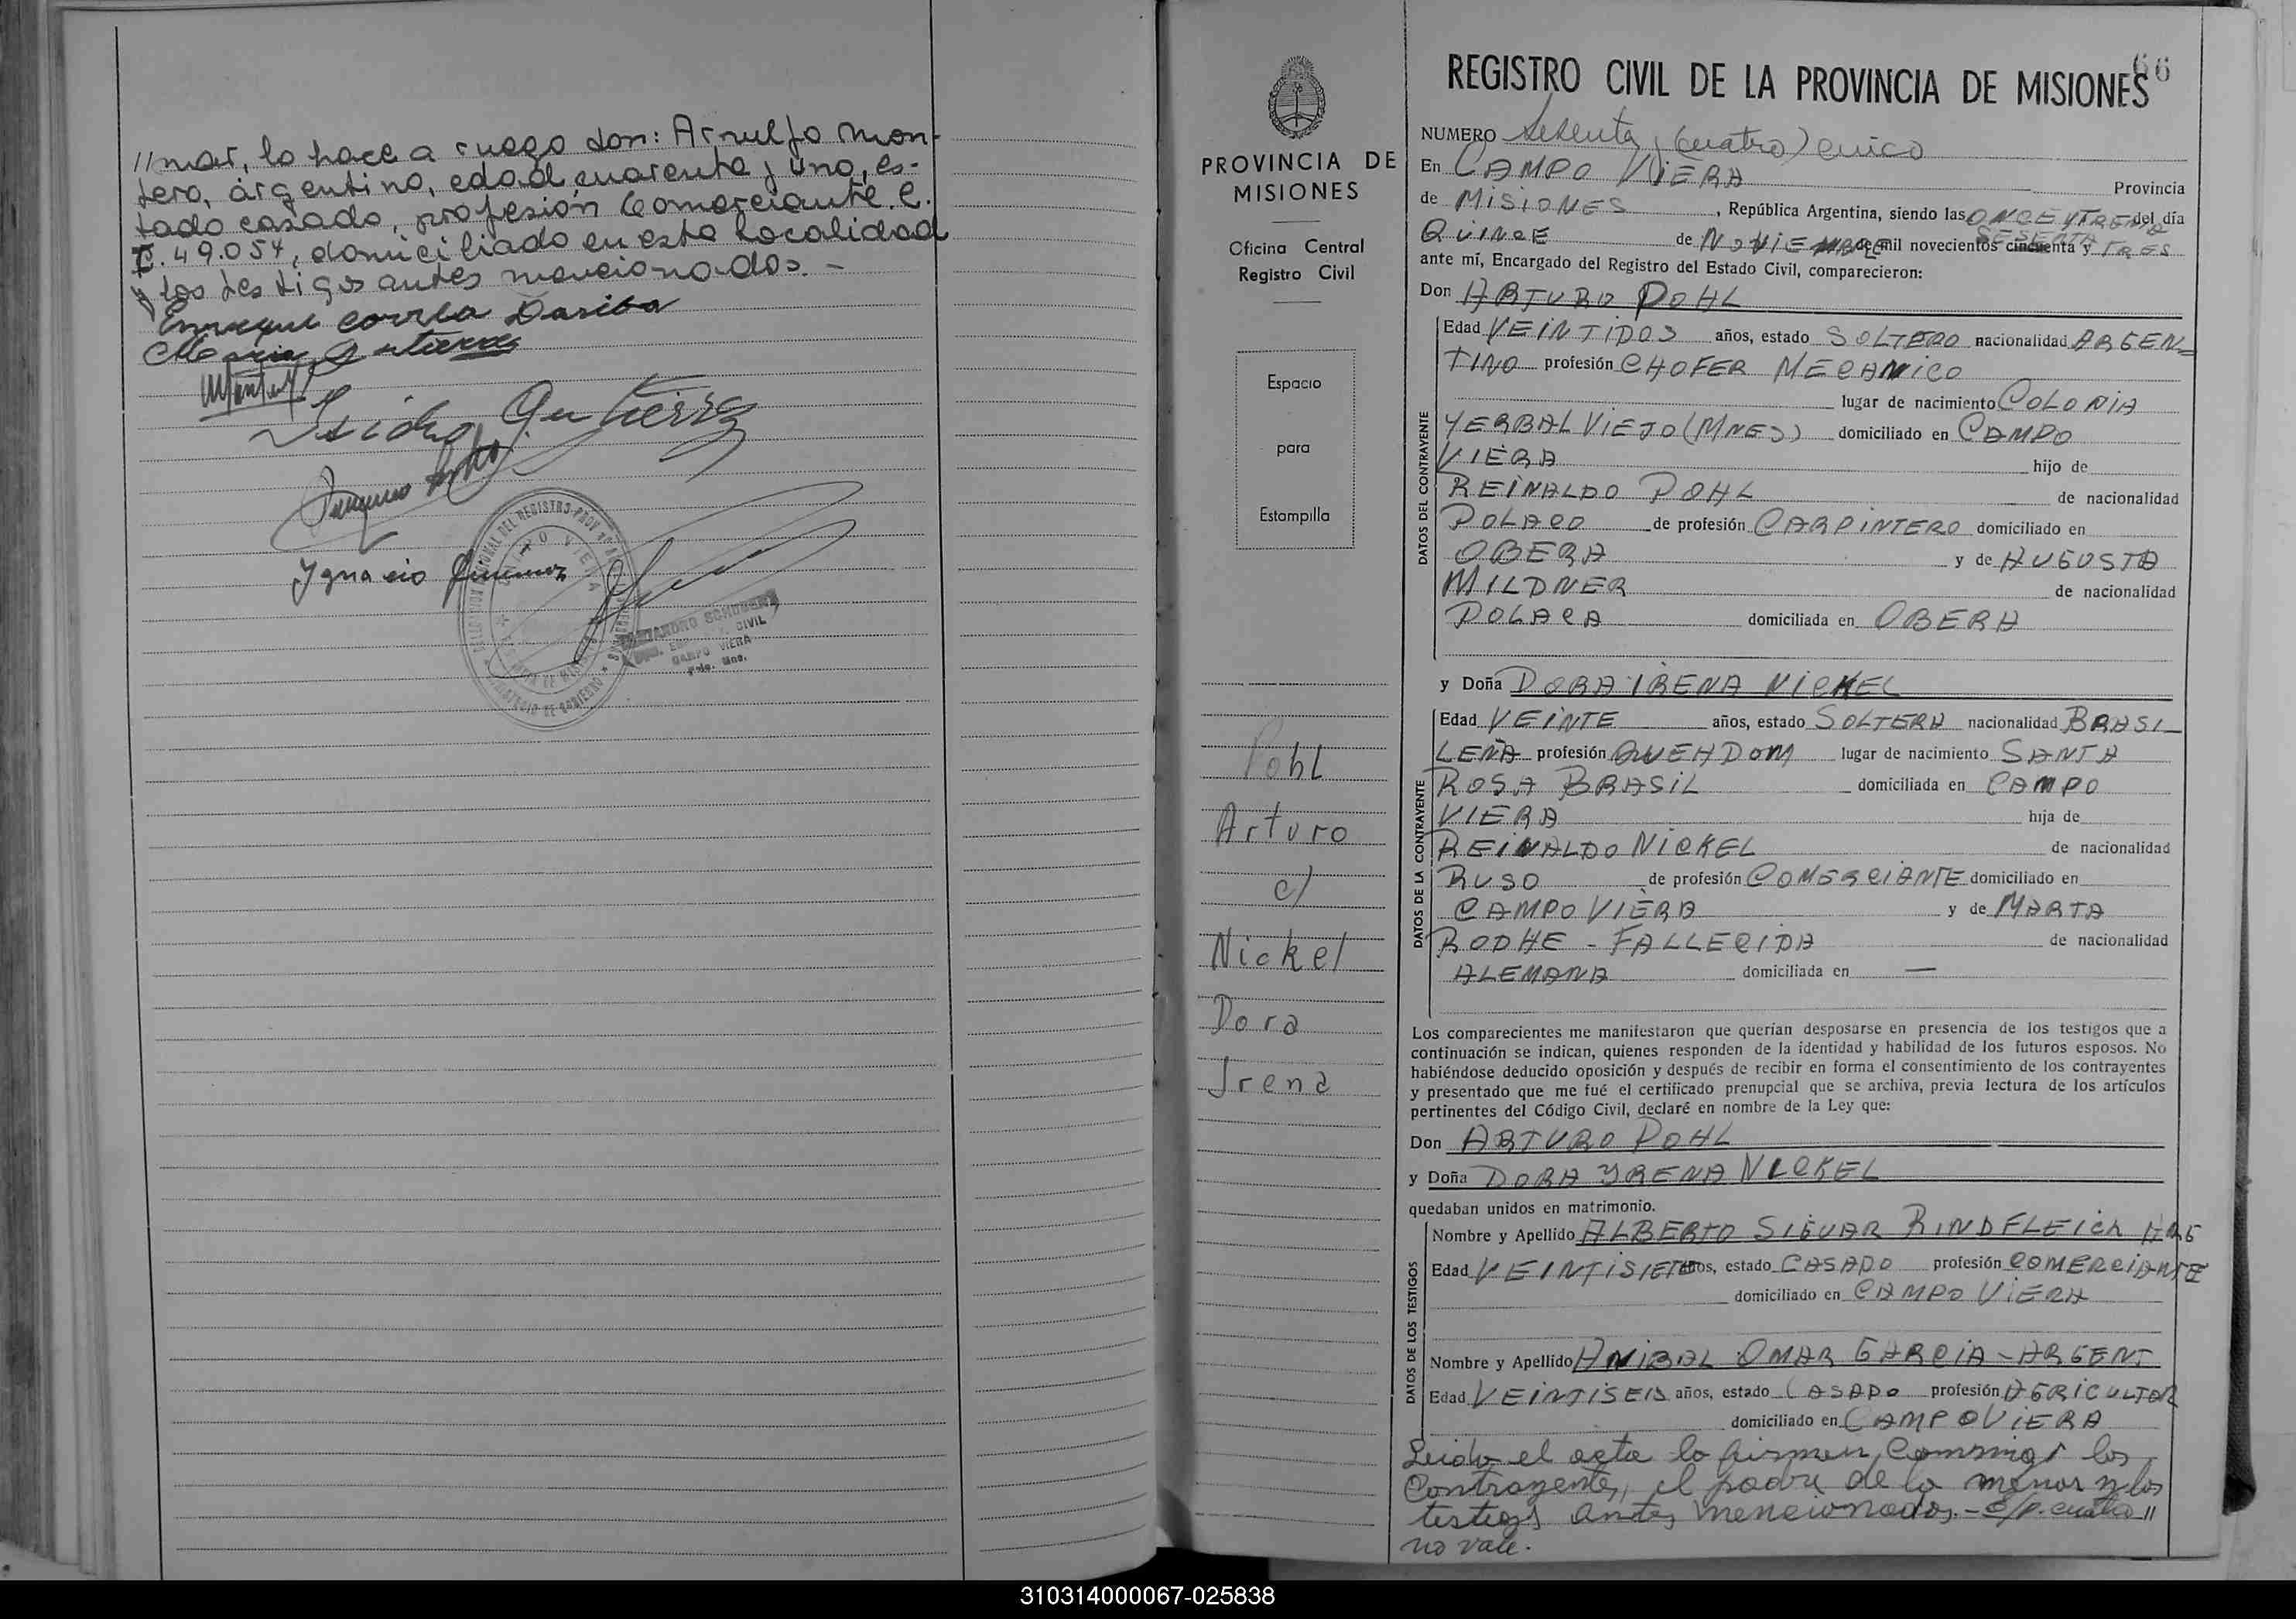 //mar, lo hace a ruego don: Arnulfo Mon-
tero, argentino, edad cuarenta y uno, es-
tado casado, profesión Comerciante. C.
I. 49.054, domiciliado en esta localidad
y los testigos antes mencionados. -
Enrique Correa Dasilva
Maria Gutierrez
Isidro Gutierrez
Ignacio Jimenez
CAMPO VIERA
MINISTERIO DE GOBIERNO
CIVIL
CAMPO VIERA
PROVINCIA DE
MISIONES
Oficina Central
Registro Civil
Espacio
para
Estampilla
Pohl
Arturo
c/
Nickel
Dora
Irena
66
REGISTRO CIVIL DE LA PROVINCIA DE MISIONES
NUMERO Sesenta y (cuatro) cinco
En CAMPO VIERA Provincia
de MISIONES, República Argentina, siendo las ONCE Y TREINTA del día
QUINCE de NOVIEMBRE de mil novecientos cincuenta y SESENTA TRES
ante mí, Encargado del Registro del Estado Civil, comparecieron:
Don ARTURO POHL
DATOS DEL CONTRAYENTE
Edad VEINTIDOS años, estado SOLTERO nacionalidad ARGEN-
TINO profesión CHOFER MECANICO
lugar de nacimiento COLONIA
YERBAL VIEJO (MNES) domiciliado en CAMPO
VIERA hijo de
REINALDO POHL de nacionalidad
POLACO de profesión CARPINTERO domiciliado en
OBERA y de AUGUSTA
MILDNER de nacionalidad
POLACA domiciliada en OBERA
y Doña DORA IRENA NICKEL
DATOS DE LA CONTRAYENTE
Edad VEINTE años, estado SOLTERA nacionalidad BRASI-
LEÑA profesión QUEHDOM lugar de nacimiento SANTA
ROSA BRASIL domiciliada en CAMPO
VIERA hija de
REINALDO NICKEL de nacionalidad
RUSO de profesión COMERCIANTE domiciliado en
CAMPO VIERA y de MARTA
RODHE - FALLECIDA de nacionalidad
ALEMANA domiciliada en —
Los comparecientes me manifestaron que querían desposarse en presencia de los testigos que a
continuación se indican, quienes responden de la identidad y habilidad de los futuros esposos. No
habiéndose deducido oposición y después de recibir en forma el consentimiento de los contrayentes
y presentado que me fué el certificado prenupcial que se archiva, previa lectura de los artículos
pertinentes del Código Civil, declaré en nombre de la Ley que:
Don ARTURO POHL
y Doña DORA YRENA NICKEL
quedaban unidos en matrimonio.
DATOS DE LOS TESTIGOS
Nombre y Apellido ALBERTO SIGUAR RINDFLEICH ARG
Edad VEINTISIETE años, estado CASADO profesión COMERCIANTE
domiciliado en CAMPO VIERA
Nombre y Apellido ANIBAL OMAR GARCIA - ARGENT
Edad VEINTISEIS años, estado CASADO profesión AGRICULTOR
domiciliado en CAMPO VIERA
Leida el acta la firman conmigo los
Contrayentes, el padre de la menor y los
testigos antes mencionados. - E/p. cuatro //
no vale.
310314000067-025838